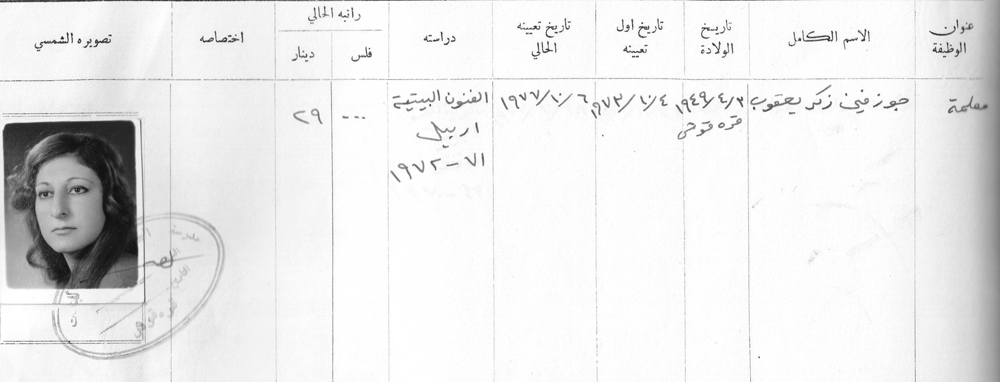 عنوان الوظيفة
الاسم الكامل
تاريخ الولادة
تاريخ اول تعيينه
تاريخ تعيينه الحالي
دراسته
راتبه الحالي
فلس
دينار
اختصاصه
تصويره الشمسي
معلمة
جوزفين زكر يعقوب
١٩٤٩/٤/٣
قره قوش
١٩٧٣/١٠/٤
١٩٧٧/١٠/٦
الفنون البيتية
اربيل
٧١-١٩٧٢
---
٢٩
مدرسة
قره قوش